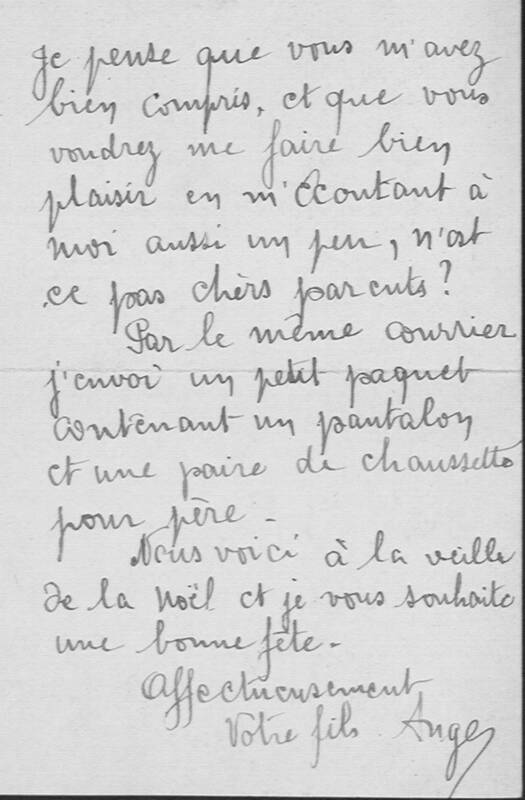 Je pense que vous m'avez
bien compris, et que vous
voudrez me faire bien
plaisir en m'écoutant à
moi aussi un peu, n'est
ce pas chèrs parents?
Par le même courrier
j'envoi un petit paquet
contenant un pantalon
et une paire de chaussette
pour père -
Nous voici à la veille
de la Noël et je vous souhaite
une bonne fête -
Affectueusement
Votre fils Ange